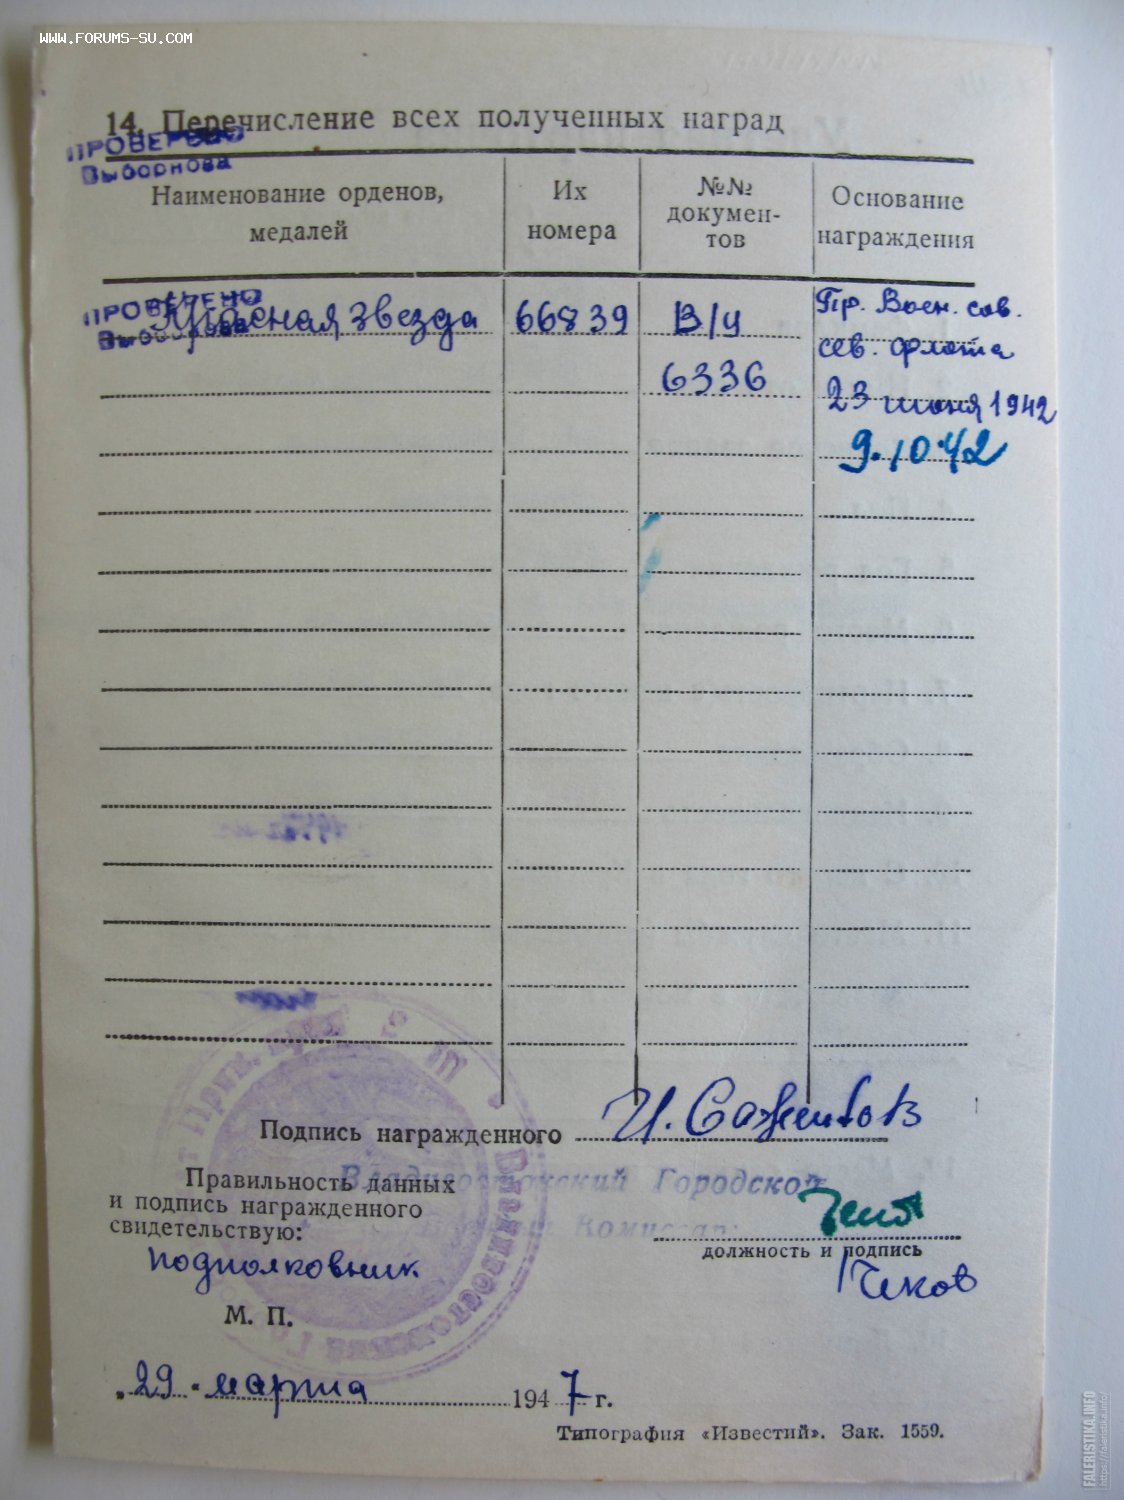 WWW.FORUMS-SU.COM
14. Перечисление всех полученных наград
ПРОВЕРЕНО
Выборнова
Наименование орденов, медалей
Их номера
№№ документов
Основание награждения
ПРОВЕРЕНО
Выборнова
Красная звезда 66839 В/ч Пр. Воен. сов.
6336 сев. флота
23 июня 1942
9.10.42
Подпись награжденного
Правильность данных
и подпись награжденного
свидетельствую:
Владивостокский Городской
Комиссар
подполковник
должность и подпись
Чеков
М. П.
„29 " марта 1947 г.
Типография «Известий». Зак. 1559.
FALERISTIKA.INFO
https://faleristika.info/